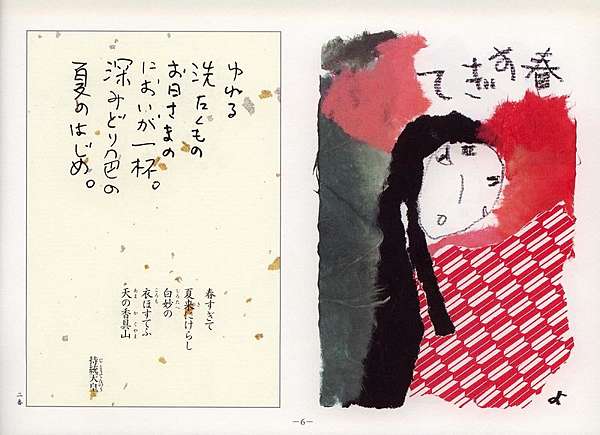 春すぎて
よ
ゆれる
洗たくもの
お日さまの
においが一杯。
深みどり色の
夏のはじめ。
春すぎて
夏来にけらし
白妙の
衣ほすてふ
天の香具山
持統天皇
二番
—6—